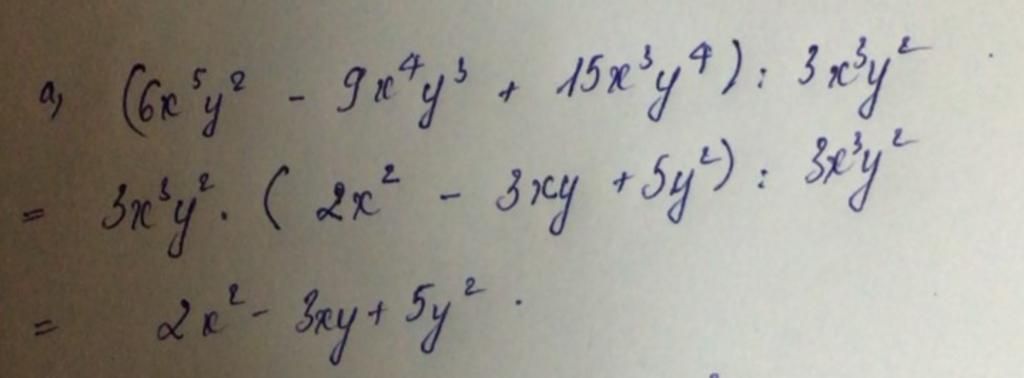 a, (6x⁵y² - 9x⁴y³ + 15x³y⁴) : 3x³y²
= 3x³y² . ( 2x² - 3xy + 5y²) : 3x³y²
= 2x² - 3xy + 5y² .